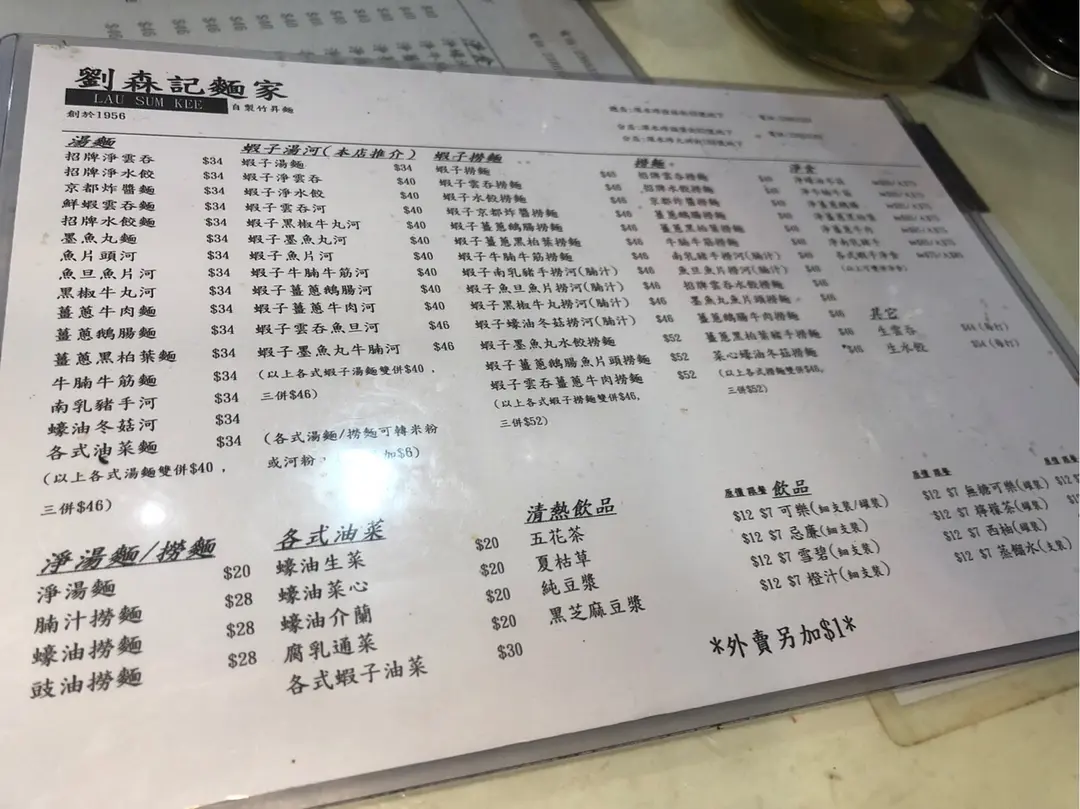 劉森記麵家
LAU SUM KEE 自製竹昇麵
創於1956
湯麵
招牌淨雲吞 $34
招牌淨水餃 $34
京都炸醬麵 $34
鮮蝦雲吞麵 $34
招牌水餃麵 $34
墨魚丸麵 $34
魚片頭河 $34
魚旦魚片河 $34
黑椒牛丸河 $34
薑蔥牛肉麵 $34
薑蔥鵝腸麵 $34
薑蔥黑柏葉麵 $34
牛腩牛筋麵 $34
南乳豬手河 $34
蠔油冬菇河 $34
各式油菜麵 $34
(以上各式湯麵雙併$40，
三併$46)
蝦子湯河(本店推介)
蝦子湯麵 $34
蝦子淨雲吞 $40
蝦子淨水餃 $40
蝦子雲吞河 $40
蝦子黑椒牛丸河 $40
蝦子墨魚丸河 $40
蝦子魚片河 $40
蝦子牛腩牛筋河 $40
蝦子薑蔥鵝腸河 $40
蝦子薑蔥牛肉河 $40
蝦子雲吞魚旦河 $46
蝦子墨魚丸牛腩河 $46
(以上各式蝦子湯麵雙併$40，
三併$46)
(各式湯麵/撈麵可轉米粉
或河粉， 加$6)
蝦子撈麵
蝦子撈麵 $46
蝦子雲吞撈麵 $46
蝦子水餃撈麵 $46
蝦子京都炸醬撈麵 $46
蝦子薑蔥鵝腸撈麵 $46
蝦子薑蔥黑柏葉撈麵 $46
蝦子牛腩牛筋撈麵 $46
蝦子南乳豬手撈河(腩汁) $46
蝦子魚旦魚片撈河(腩汁) $46
蝦子黑椒牛丸撈河(腩汁) $46
蝦子蠔油冬菇撈河(腩汁) $46
蝦子墨魚丸水餃撈麵 $52
蝦子薑蔥鵝腸魚片頭撈麵 $52
蝦子雲吞薑蔥牛肉撈麵 $52
(以上各式蝦子撈麵雙併$46，
三併$52)
撈麵
招牌雲吞撈麵 $46
招牌水餃撈麵 $46
京都炸醬撈麵 $46
薑蔥鵝腸撈麵 $46
薑蔥黑柏葉撈麵 $46
牛腩牛筋撈麵 $46
南乳豬手撈河(腩汁) $46
魚旦魚片撈河(腩汁) $46
招牌雲吞水餃撈麵 $46
墨魚丸魚片頭撈麵 $46
薑蔥鵝腸牛肉撈麵 $46
薑蔥黑柏葉豬手撈麵 $46
菜心蠔油冬菇撈麵 $46
(以上各式撈麵雙併$46，
三併$52)
淨食
其它
生雲吞
生水餃
淨湯麵/撈麵
淨湯麵 $20
腩汁撈麵 $28
蠔油撈麵 $28
豉油撈麵 $28
各式油菜
蠔油生菜 $20
蠔油菜心 $20
蠔油介蘭 $20
腐乳通菜 $20
各式蝦子油菜 $30
清熱飲品
五花茶
夏枯草
純豆漿
黑芝麻豆漿
原價 跟餐 飲品
$12 $7 可樂(細支裝/罐裝)
$12 $7 忌廉(細支裝)
$12 $7 雪碧(細支裝)
$12 $7 橙汁(細支裝)
原價 跟餐
$12 $7 無糖可樂(罐裝)
$12 $7 檸檬茶(罐裝)
$12 $7 西柚(罐裝)
$12 $7 蒸餾水(支裝)
*外賣另加$1*